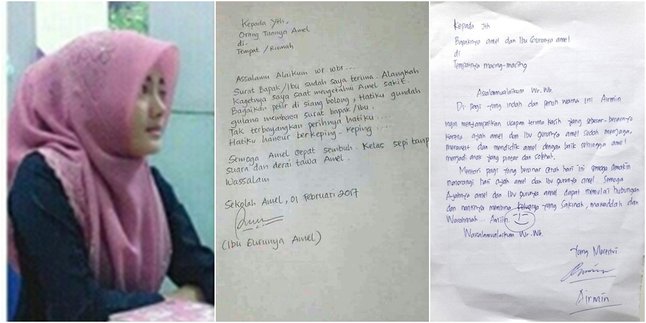 Kepada Yth.
Orang Tuanya Amel
di.
Tempat / Rumah
Assalamu Alaikum wr wbr...
Surat Bapak/Ibu sudah saya terima. Alangkah
Kagetnya saya saat mengetahui Amel sakit
Bagaikan petir di siang bolong, Hatiku gundah
gulana membaca surat bapak/Ibu.
Tak terbayangkan perihnya hatiku...
Hatiku hancur berkeping-keping...
Semoga Amel cepat sembuh. Kelas sepi tanpa
suara dan derai tawa Amel.
Wassalam
Sekolah Amel, 01 Februari 2017
(Ibu Gurunya Amel)
Kepada Yth
Bapaknya amel dan Ibu Gurunya amel
di
Tempatnya masing-masing
Assalamualaikum Wr. Wb.
Di pagi yang indah dan penuh warna ini Airmin
ingin menyampaikan ucapan terima kasih yang sebesar-besarnya
kerena ayah amel dan Ibu gurunya amel sudah menjaga,
merawat dan mendidik amel dengan baik sehingga amel
menjadi anak yang pintar dan
Mentari pagi yang bersinar cerah hari ini semoga
menerangi hati ayah amel dan Ibu gurunya amel. Semoga
Ayahnya amel dan Ibu gurunya amel dapat memulai hubungan
dan nantinya membina keluarga yang sakinah, mawaddah dan
Warahmah... Amiin
Wassalamualaikum Wr. Wb.
Yang
Airmin